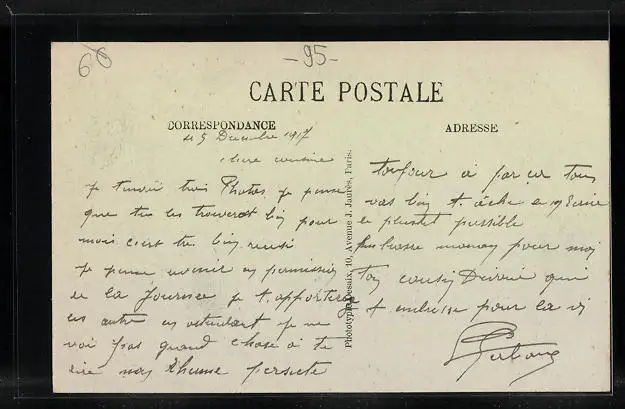 60
-95-
CARTE POSTALE
CORRESPONDANCE
ADRESSE
le 5 Décembre 1917
chère cousine
Je t'envoi trois Photos je pense
que tu les trouverat bien pour
mois c'est très bien reusi
Je pense venir en permission
de la Journee je t'apporterez
les autre en attendant je ne
voi pas quand chose a te
dire mon Rhume persiste
toujour a par ca tous
vas bien
le plustot possible
Embrasse maman pour moi
ton cousin Désiré qui
t embrasse pour la vi
Phototypie Desaix, 10, Avenue J. Jaurès, Paris.